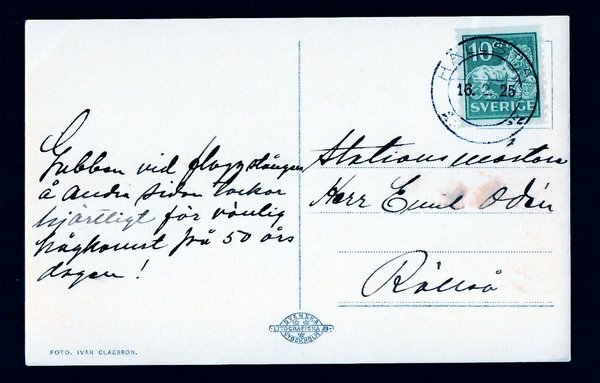 10
SVERIGE
16.2.25
Gubben vid flaggstången
å Andra sidan tackar
hjärtligt för vänlig
hågkomst på 50 års
dagen!
Stationsmästare
Herr Emil Odén
SVENSKA
LITOGRAFISKA AB
STOCKHOLM
FOTO. IVAR CLAESSON.